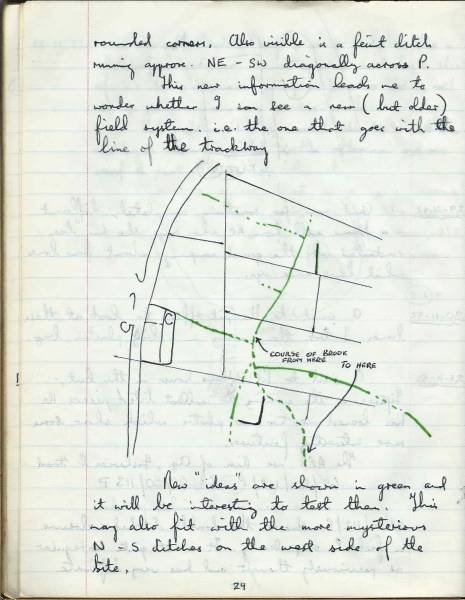 rounded corners. Also visible is a feint ditch
running approx. NE - SW diagonally across P.
This new information leads me to
wonder whether I can see a new (but older)
field system. i.e. the one that goes with the
line of the trackway
?
C
COURSE OF BROOK
FROM HERE
TO HERE
!
New "ideas" are shown in green and
it will be interesting to test them. This
may also fit with the more mysterious
N - S ditches on the west side of the
site.
24